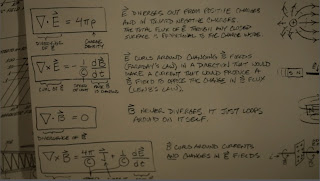 ∇·E = 4πρ
DIVERGENCE OF E
CHARGE DENSITY
E DIVERGES OUT FROM POSITIVE CHARGES
AND IN TOWARD NEGATIVE CHARGES.
THE TOTAL FLUX OF E THROUGH ANY CLOSED
SURFACE IS PROPORTIONAL TO THE CHARGE INSIDE.
∇×E = -1/c dB/dt
CURL OF E
E CURLS AROUND CHANGING B FIELDS
(FARADAY'S LAW) IN A DIRECTION THAT WOULD
MAKE A CURRENT THAT WOULD PRODUCE A
B FIELD TO OPPOSE THE CHANGE IN B FLUX
(LENZ'S LAW).
∇·B = 0
DIVERGENCE OF B
B NEVER DIVERGES, IT JUST LOOPS
AROUND ON ITSELF.
∇×B = 4π/c J + 1/c dE/dt
B CURLS AROUND CURRENTS
AND CHANGES IN E FIELDS
S N